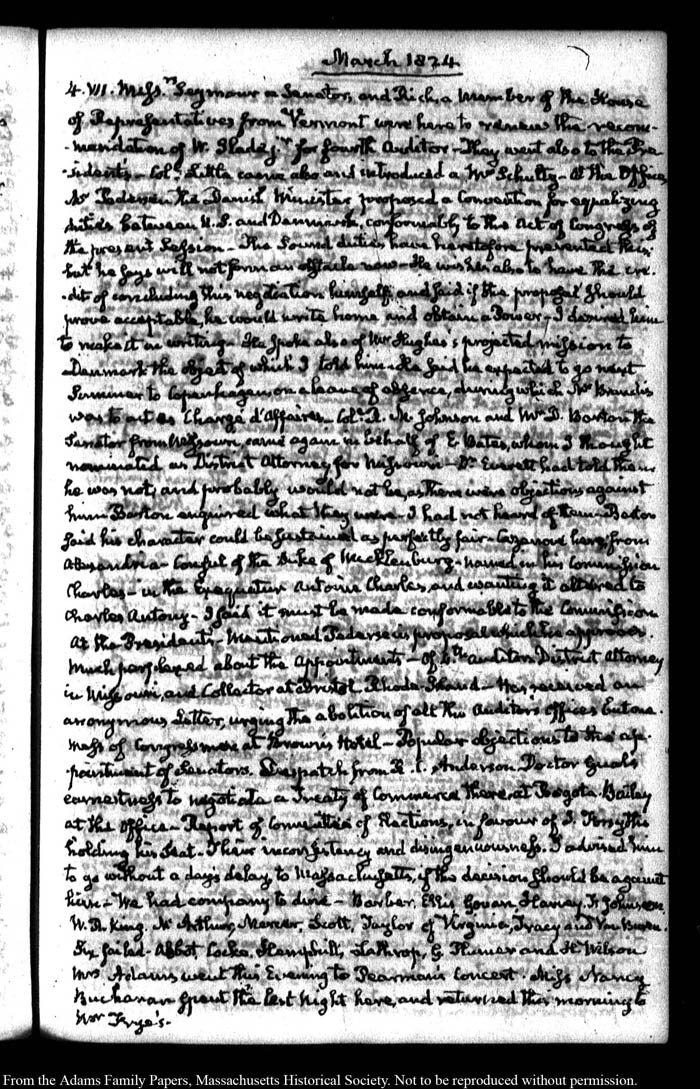 March 1824
4. VII. Mess.rs Seymour a Senator, and Rich, a member of the House
of Representatives from Vermont were here to renew the recom-
-mendation of W. Slade jr. for fourth Auditor – They went also to the Pre-
-sident's – Col.l Little came also and introduced a Mr Schultz – At the Office,
Mr Pedersen the Danish Minister proposed a Convention for equalizing
duties between U.S. and Denmark, conformably to the Act of Congress of
the present Session – The Sound duties have heretofore prevented this;
but he says will not form an obstacle now – He wishes also to have the cre-
-dit of concluding this negotiation himself; and said if the proposal should
prove acceptable, he would write home and obtain a Power – I desired him
to make it in writing – He spoke also of Mr Hughes's projected mission to
Denmark the object of which I told him – He said he expected to go next
Summer to Copenhagen, on a leave of absence, during which Mr Brandis
was to act as Chargé d'Affaires – Col.l R. M. Johnson and Mr D. Barton the
Senator from Missouri, came again in behalf of E. Bates, whom I thought
nominated as District Attorney for Missouri – Dr. Everett had told them
he was not, and probably would not be, as there were objections against
him. Barton enquired what they were – I had not heard of them – Barton
said his character could be sustained as perfectly fair – Cazenove here, from
Alexandria – Consul of the Duke of Mecklenburg – named in his Commission
Charles – in the Exequatur Antoine Charles, and wanting it altered to
Charles Antony – I said it must be made conformable to the Commission
At the President's – Mentioned Pedersen's proposal which he approves.
Much perplexed about the Appointments – of 4.th Auditor, District Attorney
in Missouri, and Collector at Bristol Rhode-Island – Has received an
anonymous Letter, urging the abolition of all the Auditors Offices but one.
Mess of Congressmen at Brown's Hotel – Popular objections to the ap-
-pointment of Senators. Despatch from R. C. Anderson. Doctor Gual's
earnestness to negotiate a Treaty of Commerce there, at Bogota. Bailey
at the Office – Report of Committee of Elections, in favour of J. Forsyth's
holding his Seat – Their inconsistency and disingenuousness. I advised him
to go without a days delay to Massachusetts, if the decision should be against
him – We had company to dine – Barber, Ellis, Govan, Harvey, Fr Johnson
W. R. King, McArthur, Mercer, Scott, Taylor of Virginia, Tracy and Van Buren.
Six failed. Abbot, Cocke, Hemphill, Lathrop, G. Plumer and H. Wilson
Mrs Adams went this Evening to Pearman's Concert. Miss Nancy
Buchanan spent the last Night here, and returned this morning to
Mr Frye's –
From the Adams Family Papers, Massachusetts Historical Society. Not to be reproduced without permission.